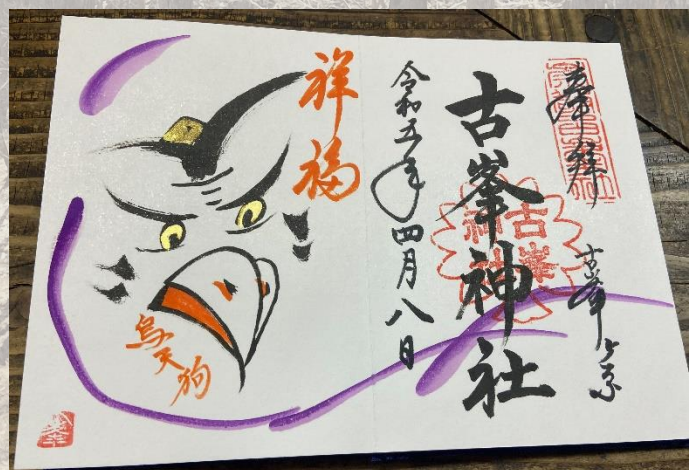 奉拝
古峯ヶ原
古峯神社
古峯神社
令和五年四月八日
祥福
烏天狗